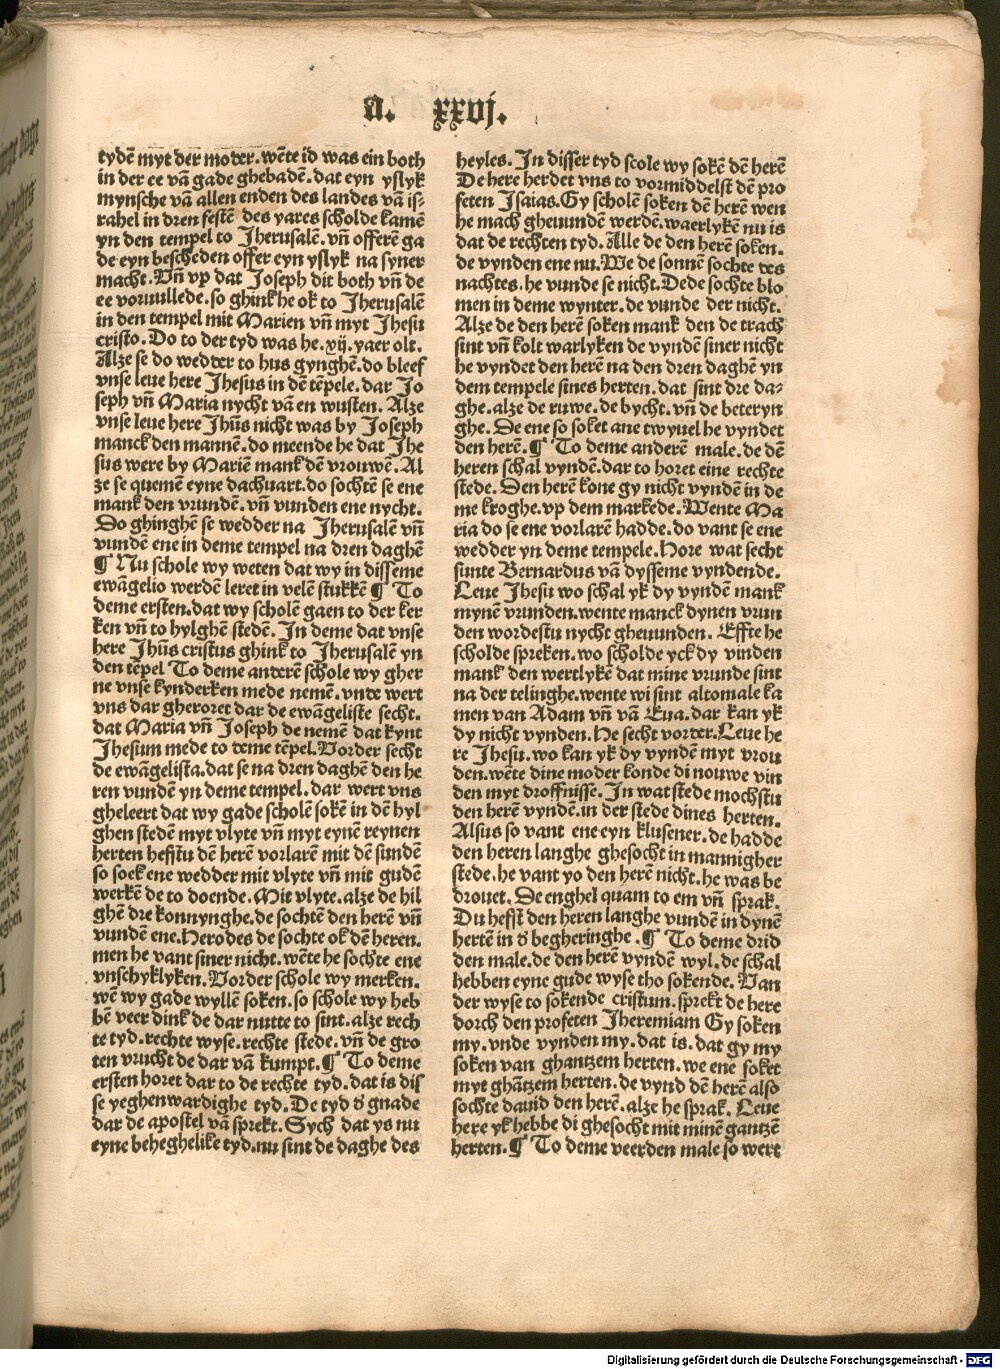 a. xxvj.
tydē myt der moder. wēte id was ein both
in der ee vā gade ghebadē. dat eyn yslyk
mynsche vā allen enden des landes vā is-
rahel in dren festē des yares scholde kamē
yn den tempel to Jherusalē. vñ offerē ga
de eyn bescheden offer eyn yslyk na syner
macht. Vñ vp dat Joseph dit both vñ de
ee voruullede. so ghink he ok to Jherusalē
in den tempel mit Marien vñ myt Jhesu
cristo. Do to der tyd was he. xij. yaer olt.
Alze se do wedder to hus gynghē. do bleef
vnse leue here Jhesus in dē tēpele. dar Jo
seph vñ Maria nycht vā en wusten. Alze
vnse leue here Jhūs nicht was by Joseph
manck den mannē. do meende he dat Jhe
sus were by Mariē mank dē vrouwē. Al
ze se quemē eyne dachuart. do sochtē se ene
mank den vrundē. vñ vunden ene nycht.
Do ghinghē se wedder na Jherusalē vñ
vundē ene in deme tempel na dren daghē
¶ Nu schole wy weten dat wy in disseme
ewāgelio werdē leret in velē stukkē ¶ To
deme ersten. dat wy scholē gaen to der ker
ken vñ to hylghē stedē. In deme dat vnse
here Jhūs cristus ghink to Jherusalē yn
den tēpel To deme anderē schole wy gher
ne vnse kynderken mede nemē. vnde wert
vns dar gheroret dar de ewāgeliste secht.
dat Maria vñ Joseph de nemē dat kynt
Jhesum mede to deme tēpel. Vorder secht
de ewāgelista. dat se na dren daghē den he
ren vundē yn deme tempel. dar wert vns
gheleert dat wy gade scholē sokē in dē hyl
ghen stedē myt vlyte vñ myt eynē reynen
herten hefstu dē herē vorlarē mit dē sundē
so soek ene wedder mit vlyte vñ mit gudē
werkē de to doende. Mit vlyte. alze de hil
ghē dre konnynghe. de sochtē den herē vñ
vundē ene. Herodes de sochte ok dē heren.
men he vant siner nicht. wēte he sochte ene
vnschyklyken. Vorder schole wy merken.
wē wy gade wyllē soken. so schole wy heb
bē veer dink de dar nutte to sint. alze rech
te tyd. rechte wyse. rechte stede. vñ de gro
ten vrucht de dar vā kumpt. ¶ To deme
ersten horet dar to de rechte tyd. dat is dis
se yeghenwardighe tyd. De tyd d' gnade
dar de apostel vā sprekt. Sych dat ys nu
eyne beheghelike tyd. nu sint de daghe des
heyles. In disser tyd scole wy sokē dē herē
De here herdet vns to vormiddelst dē pro
feten Isaias. Gy scholē soken dē herē wen
he mach gheuundē werdē. waerlykē nu is
dat de rechten tyd. Alle de den herē soken.
de vynden ene nu. We de sonnē sochte des
nachtes. he vunde se nicht. Dede sochte blo
men in deme wynter. de vunde der nicht.
Alze de den herē soken mank den de trach
sint vñ kolt warlyken de vyndē siner nicht
he vyndet den herē na den dren daghē yn
dem tempele sines herten. dat sint dre da-
ghe. alze de ruwe. de bycht. vñ de beteryn
ghe. De ene so soket ane twyuel he vyndet
den herē. ¶ To deme anderē male. de dē
heren schal vyndē. dar to horet eine rechte
stede. Den herē kone gy nicht vyndē in de
me kroghe. vp dem markede. Wente Ma
ria do se ene vorlarē hadde. do vant se ene
wedder yn deme tempele. Hore wat secht
sunte Bernardus vā dysseme vyndende.
Leue Jhesu wo schal yk dy vyndē mank
mynē vrunden. wente manck dynen vrun
den wordestu nycht gheuunden. Effte he
scholde spreken. wo scholde yck dy vinden
mank den wertlykē dat mine vrunde sint
na der telinghe. wente wi sint altomale ka
men van Adam vñ vā Eua. dar kan yk
dy nicht vynden. He secht vorder. Leue he
re Jhesu. wo kan yk dy vyndē myt vrou
den. wēte dine moder konde di nouwe vin
den myt droffnisse. In wat stede mochstu
den herē vyndē. in der stede dines herten.
Alsus so vant ene eyn klusener. de hadde
den heren langhe ghesocht in mannigher
stede. he vant yo den herē nicht. he was be
drouet. De enghel quam to em vñ sprak.
Du hefst den heren langhe vundē in dynē
hertē in d' begheringhe. ¶ To deme drid
den male. de den herē vyndē wyl. de schal
hebben eyne gude wyse tho sokende. Van
der wyse to sokende cristum. sprekt de here
dorch den profeten Jheremiam Gy soken
my. vnde vynden my. dat is. dat gy my
soken van ghantzem herten. we ene soket
myt ghātzem herten. de vynd dē herē also
sochte dauid den herē. alze he sprak. Leue
here yk hebbe di ghesocht mit minē gantzē
herten. ¶ To deme veerden male so wert
Digitalisierung gefördert durch die Deutsche Forschungsgemeinschaft - DFG